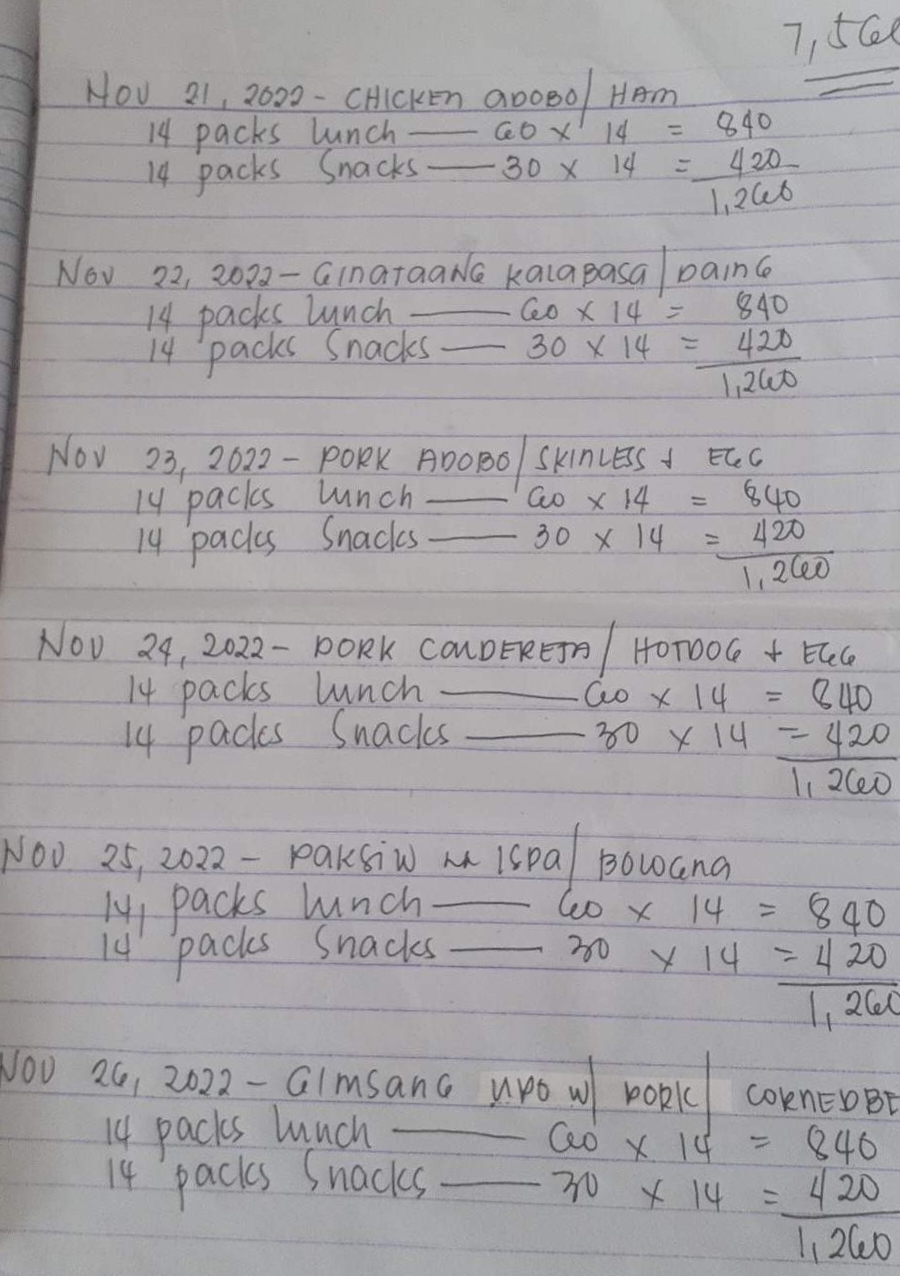 7,560
NOV 21, 2022 - CHICKEN ADOBO/ HAM
14 packs lunch — 60 x 14 = 840
14 packs Snacks — 30 x 14 = 420
1,260
NOV 22, 2022 - GINATAANG KALABASA/ DAING
14 packs lunch — 60 x 14 = 840
14 packs Snacks — 30 x 14 = 420
1,260
NOV 23, 2022 - PORK ADOBO/ SKINLESS + EGG
14 packs lunch — 60 x 14 = 840
14 packs Snacks — 30 x 14 = 420
1,260
NOV 24, 2022 - PORK CALDERETA/ HOTDOG + EGG
14 packs lunch — 60 x 14 = 840
14 packs Snacks — 30 x 14 = 420
1,260
NOV 25, 2022 - PAKSIW na ISDA/ BOLOGNA
14 packs lunch — 60 x 14 = 840
14 packs Snacks — 30 x 14 = 420
1,260
NOV 26, 2022 - GIMSANG UPO W/ PORK/ CORNEDBE
14 packs lunch — 60 x 14 = 840
14 packs Snacks — 30 x 14 = 420
1,260